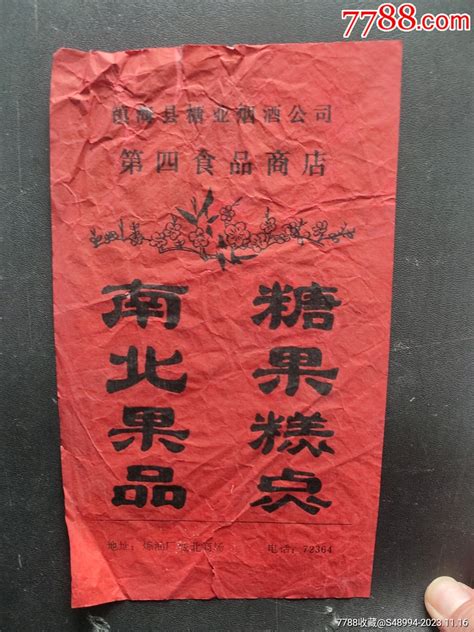 7788.com
镇海县糖业烟酒公司
第四食品商店
糖果糕点
南北果品
地址：炼油厂城北商场 电话：72364
7788收藏@S48994-2023.11.16